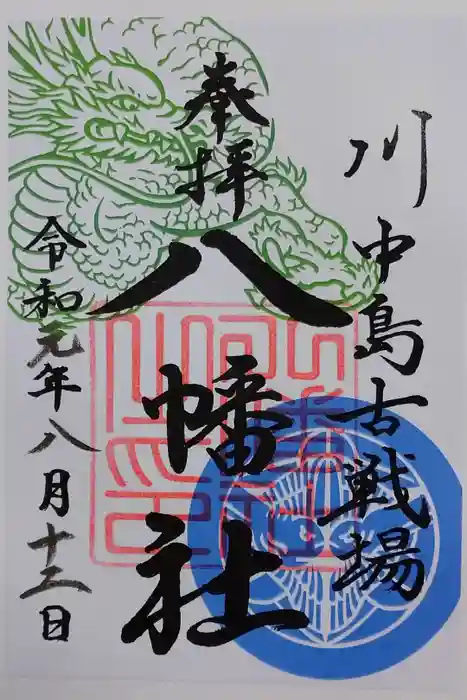 川中島古戦場
奉拝
八幡社
令和元年八月十三日